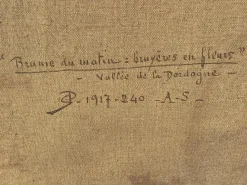 " Brume du matin : bruyères en fleurs "
- Vallée de la Dordogne -
- 1917 - 240 - A - S -